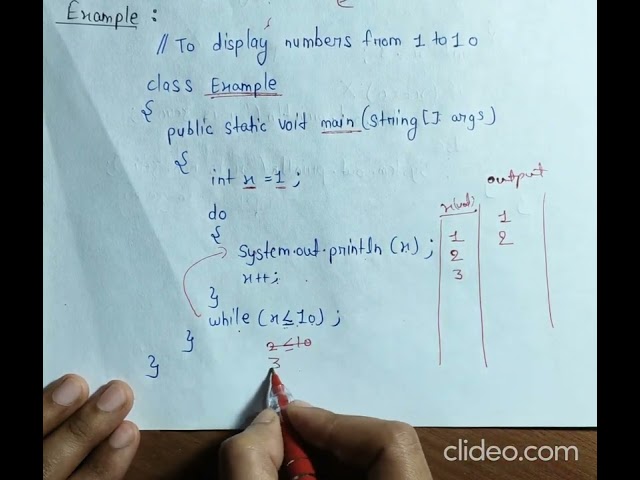 Example :
// To display numbers from 1 to 10
class Example
{
public static void main (string [] args)
{
int x = 1 ;
do
{
system.out.println (x) ;
x++;
}
while (x ≤ 10) ;
}
}
2 ≤ 10
3
output
1 1
2 2
3
clideo.com